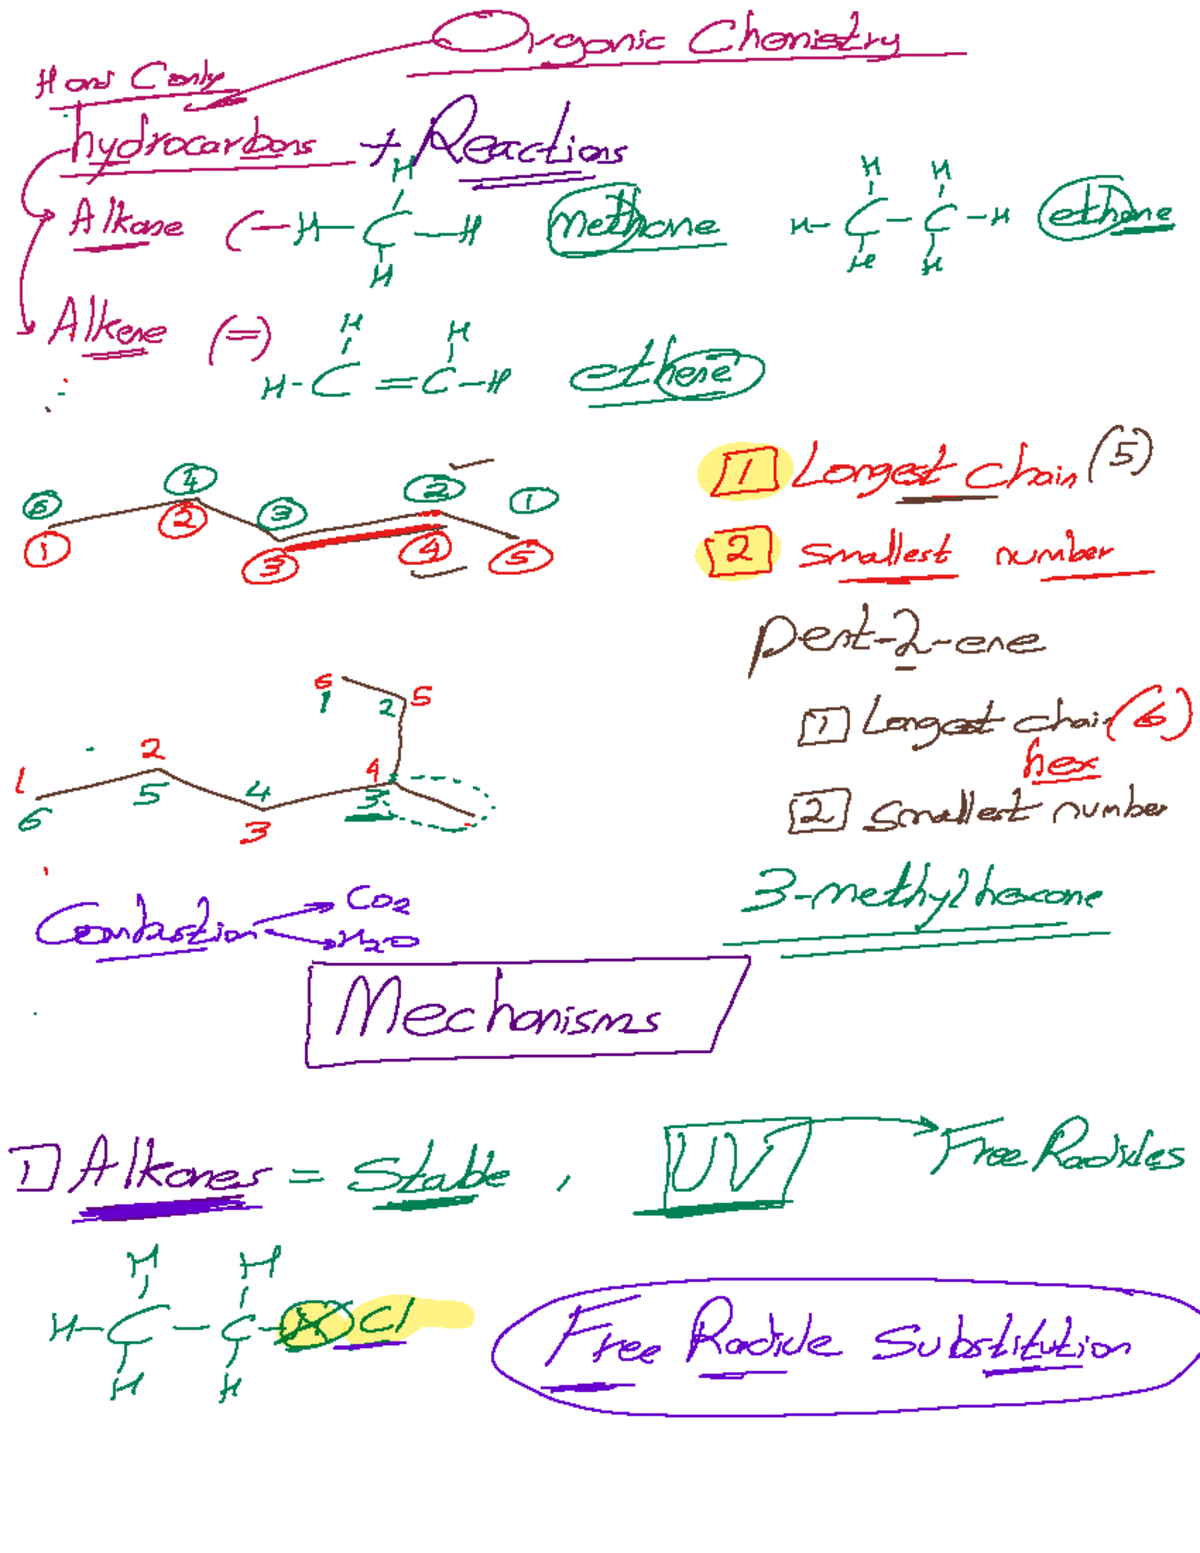 Organic Chemistry
H and C only
hydrocarbons + Reactions
Alkane (- H-C-H H H methane H-C-C-H H H H H ethane
Alkene (=) H-C=C-H H H ethene
5 4 3 2 1
1 2 3 4 5
1 Longest chain (5)
2 smallest number
pent-2-ene
6 5
1 2
1 Longest chain (6)
hex
1 2 4 4
6 5 3 3
2 smallest number
3-methylhexane
Combustion CO2
H2O
Mechanisms
1) Alkanes = Stable , UV Free Radicles
H H
H-C-C-H Cl
H H
Free Radicle Substitution